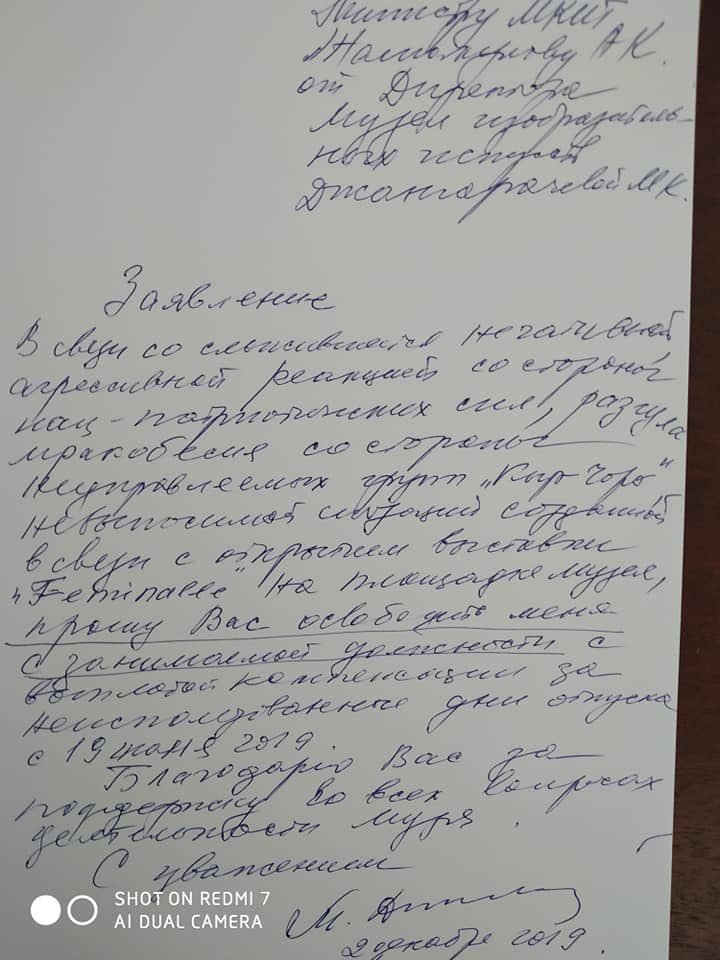 Министру МКИТ
Жаманкулову А К.
от Директора
Музея изобразитель-
ных искусств
Джангарачевой М К.
Заявление
В связи со сложившейся негативной
агрессивной реакцией со стороны
нац-патриотических сил, разгула
мракобесия со стороны
неуправляемых групп „Кырк Чоро"
невыносимой ситуацией созданной
в связи с открытием выставки
„Feminnale" на площадке музея,
прошу Вас освободить меня
с занимаемой должности с
выплатой компенсации за
неиспользованные дни отпуска
с 19 июня 2019.
Благодарю Вас за
поддержку во всех вопросах
деятельности музея.
С уважением
М.
2 декабря 2019.
SHOT ON REDMI 7
AI DUAL CAMERA